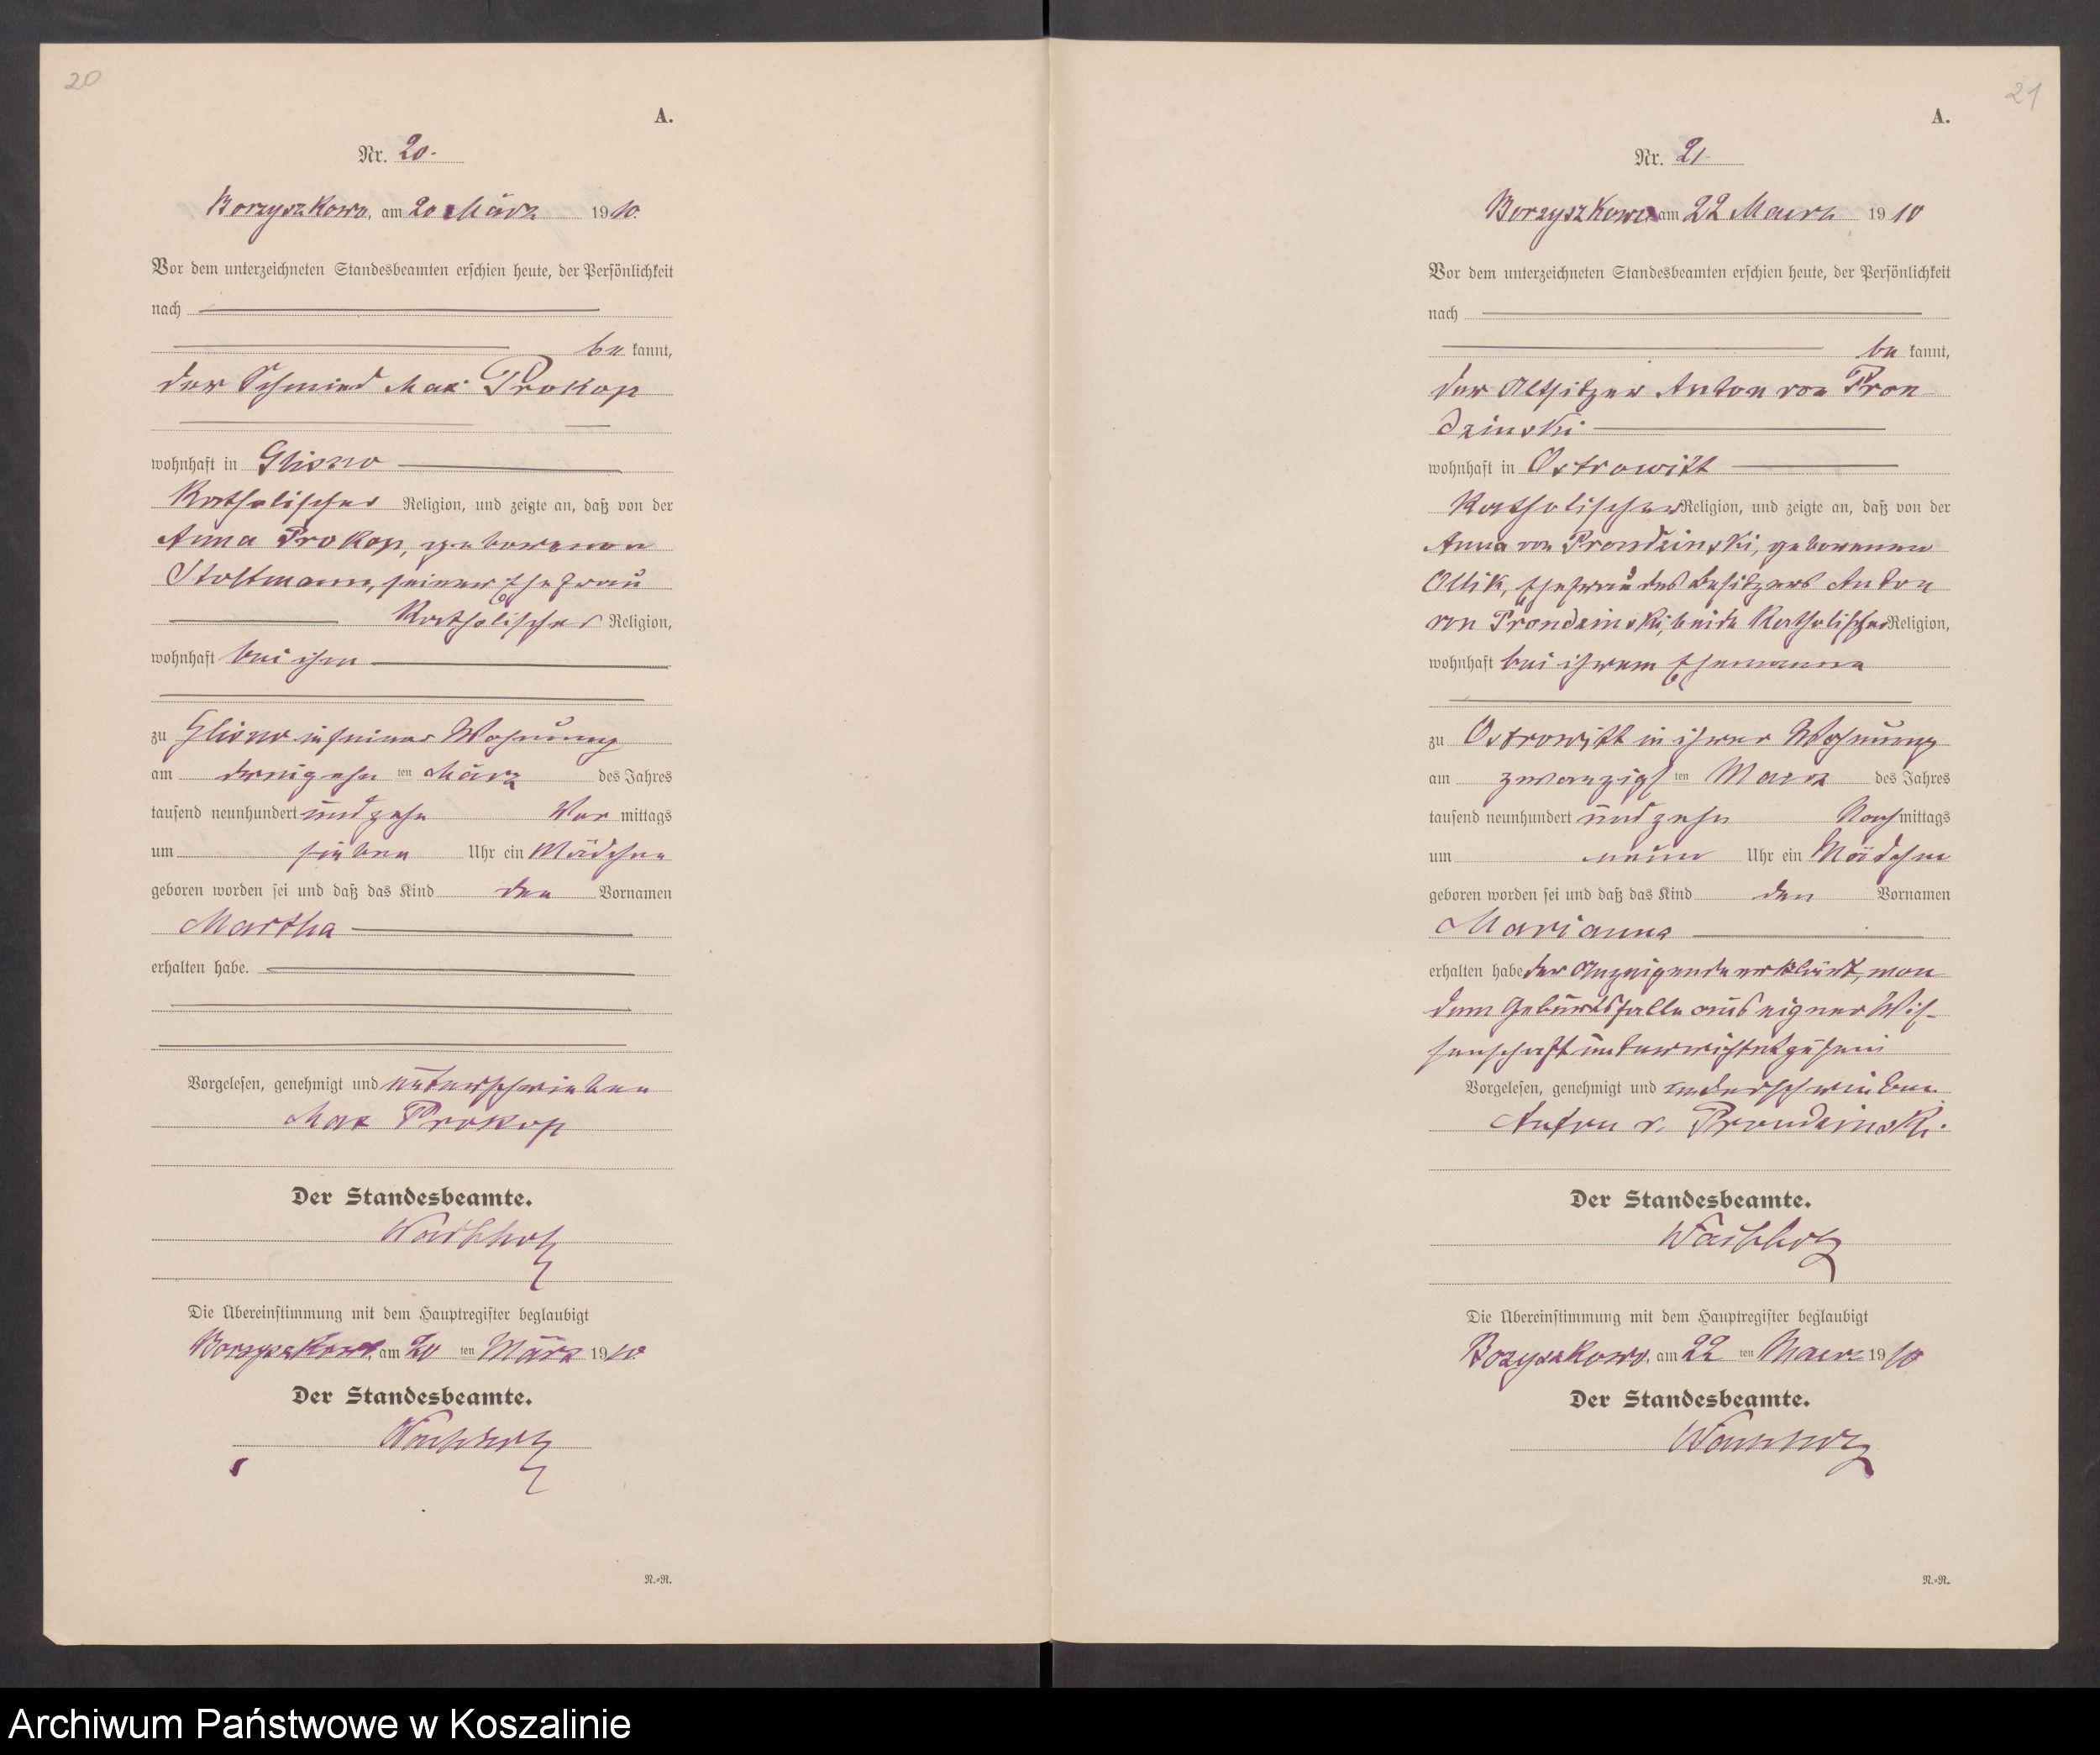 20
A.
Nr. 20.
Borzyszkowo, am 20 März 1910.
Vor dem unterzeichneten Standesbeamten erschien heute, der Persönlichkeit
nach
be kannt,
der Schmied Max Prokop
wohnhaft in Glisno
Katholischer Religion, und zeigte an, daß von der
Anna Prokop, geborenen
Stoltmann, seiner Ehefrau
Katholischer Religion,
wohnhaft bei ihm
zu Glisno in seiner Wohnung
am dreizehn ten März des Jahres
tausend neunhundert und zehn Vor mittags
um sieben Uhr ein Mädchen
geboren worden sei und daß das Kind den Vornamen
Martha
erhalten habe.
Vorgelesen, genehmigt und unterschrieben
Max Prokop
Der Standesbeamte.
Die Übereinstimmung mit dem Hauptregister beglaubigt
Borzyszkowo, am 20 ten März 1910.
Der Standesbeamte.
N.=N.
21
A.
Nr. 21.
Borzyszkowo am 22 Maerz 1910
Vor dem unterzeichneten Standesbeamten erschien heute, der Persönlichkeit
nach
be kannt,
der Altsitzer Anton von Pron-
dzinski
wohnhaft in Ostrowitt
Katholischer Religion, und zeigte an, daß von der
Anna von Prondzinski, geborenen
Ollik, Ehefrau des Besitzers Anton
von Prondzinski, beide Katholischer Religion,
wohnhaft bei ihrem Ehemanne
zu Ostrowitt in ihrer Wohnung
am zwanzigs ten Maerz des Jahres
tausend neunhundert und zehn Nach mittags
um neun Uhr ein Mädchen
geboren worden sei und daß das Kind den Vornamen
Marianna
erhalten habe der Anzeigende erklärt, von
dem Geburtsfalle aus eigner Wis-
senschaft unterrichtet zu sein
Vorgelesen, genehmigt und unterschrieben.
Anton v. Prondzinski.
Der Standesbeamte.
Die Übereinstimmung mit dem Hauptregister beglaubigt
Bozyszkowo, am 22 ten Maerz 1910
Der Standesbeamte.
N.=N.
Archiwum Państwowe w Koszalinie